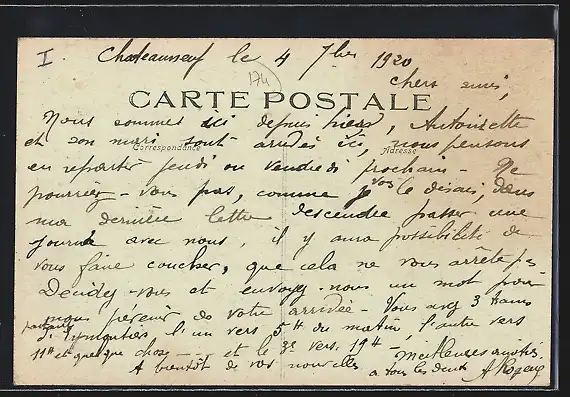 I. Chateauneuf le 4 7bre 1920
174
chers amis,
CARTE POSTALE
Correspondance
Adresse
Nous sommes ici depuis hier, Antoinette
et son mari sont arrivés ici, nous pensons
en repartir jeudi ou vendredi prochain - Ne
pourriez-vous pas, comme je vous le disais, dans
ma dernière lettre descendre passer une
journée avec nous, il y aura possibilité de
vous faire coucher, que cela ne vous arrête pas
Decidez-vous et envoyez-nous un mot pour
nous prévenir de votre arrivée - Vous avez 3 trains
partant d' l'un vers 5H du matin, l'autre vers
11H et quelque chose - et le 3e vers 19H -
Meilleures amitiés
A bientôt de vos nouvelles
à tous les deux